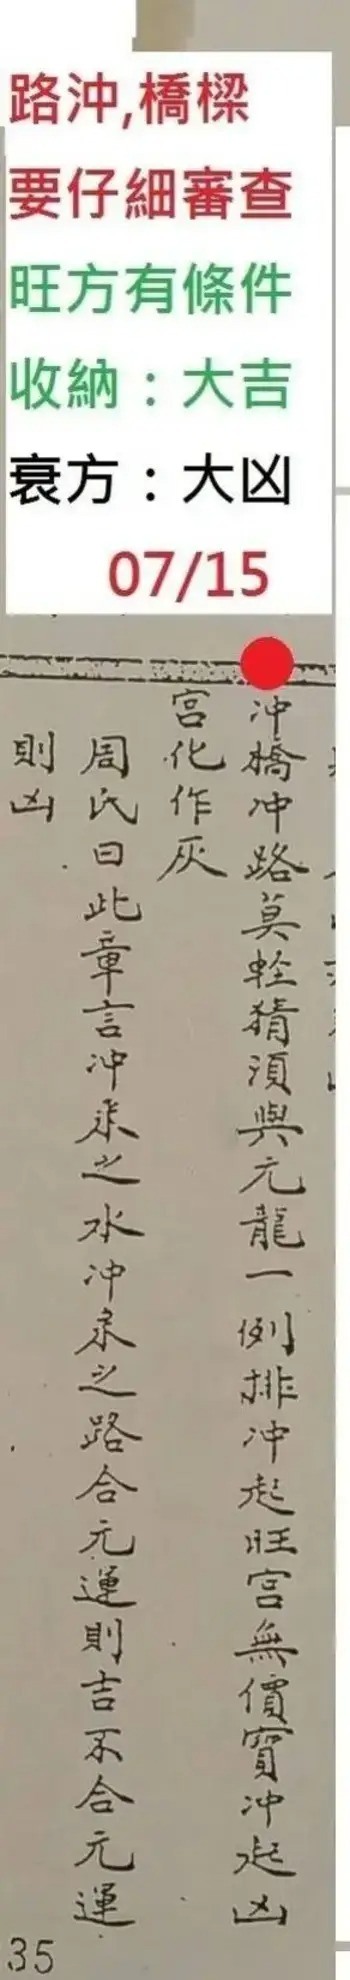 路沖,橋樑
要仔細審查
旺方有條件
收納：大吉
衰方：大凶
07/15
冲橋冲路莫輕猜須與元龍一例排冲起旺宮無價寶冲起凶
宮化作灰
周氏曰此章言冲來之水冲來之路合元運則吉不合元運
則凶
35